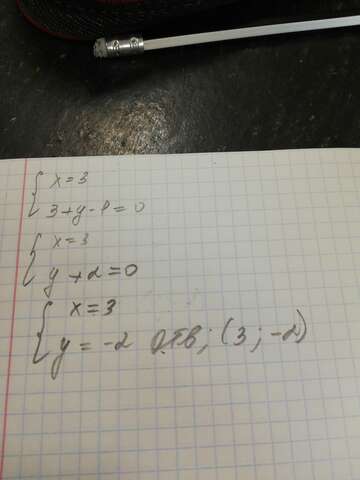 x=3
3+y-1=0
x=3
y+2=0
x=3
y=-2 Отв; (3; -2)